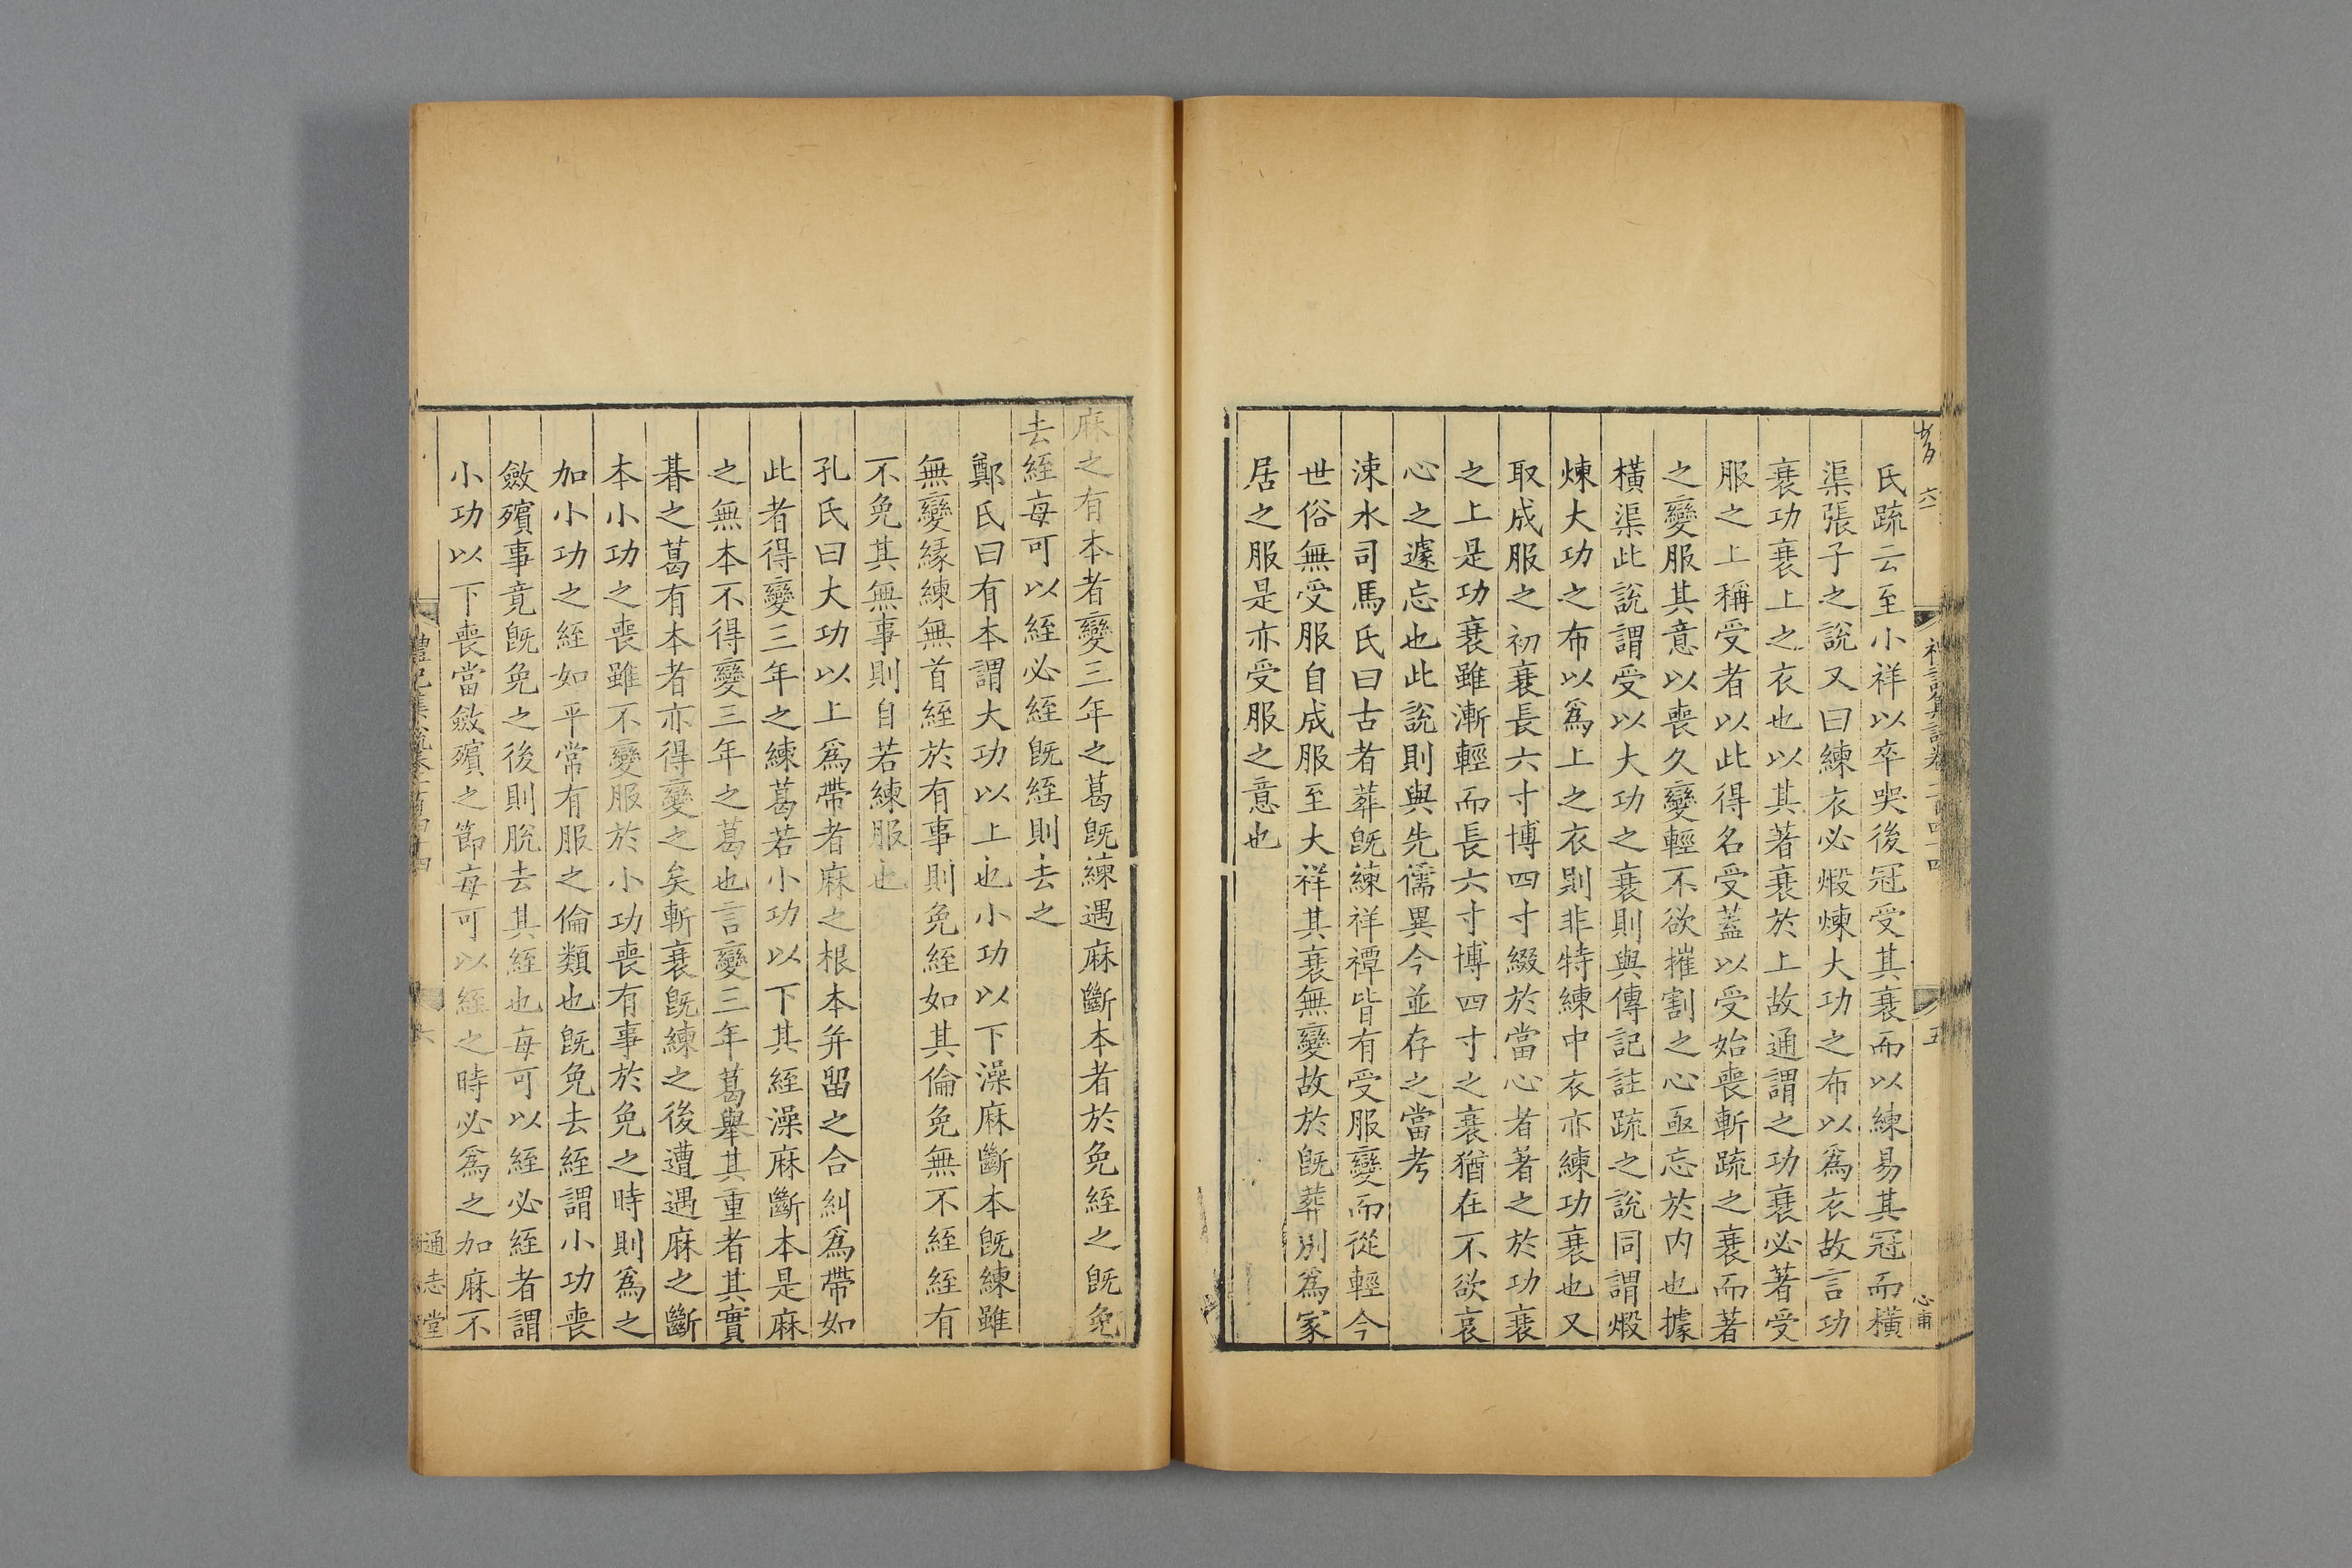 氏疏云至小祥以卒哭後冠受其衰而以練易其冠而橫
渠張子之說又曰練衣必煅煉大功之布以爲衣故言功
衰功衰上之衣也以其著衰於上故通謂之功衰必著受
服之上稱受者以此得名受蓋以受始喪斬疏之衰而著
之變服其意以喪久變輕不欲摧割之心亟忘於内也據
橫渠此說謂受以大功之衰則與傳記註疏之說同謂煅
煉大功之布以爲上之衣則非特練中衣亦練功衰也又
取成服之初衰長六寸博四寸綴於當心者著之於功衰
之上是功衰雖漸輕而長六寸博四寸之衰猶在不欲哀
心之遽忘也此說則與先儒異今並存之當考
涑水司馬氏曰古者葬旣練祥禫皆有受服變而從輕今
世俗無受服自成服至大祥其衰無變故於旣葬別爲家
居之服是亦受服之意也
麻之有本者變三年之葛旣練遇麻斷本者於免絰之旣免
去絰每可以絰必絰旣絰則去之
鄭氏曰有本謂大功以上也小功以下澡麻斷本旣練雖
無變緣練無首絰於有事則免絰如其倫免無不絰絰有
不免其無事則自若練服也
孔氏曰大功以上爲帶者麻之根本并留之合糾爲帶如
此者得變三年之練葛若小功以下其絰澡麻斷本是麻
之無本不得變三年之葛也言變三年葛舉其重者其實
朞之葛有本者亦得變之矣斬衰旣練之後遭遇麻之斷
本小功之喪雖不變服於小功喪有事於免之時則爲之
加小功之絰如平常有服之倫類也旣免去絰謂小功喪
斂殯事竟旣免之後則脫去其絰也每可以絰必絰者謂
小功以下喪當斂殯之節每可以絰之時必爲之加麻不
禮記集說卷一百四十四
六
通志堂